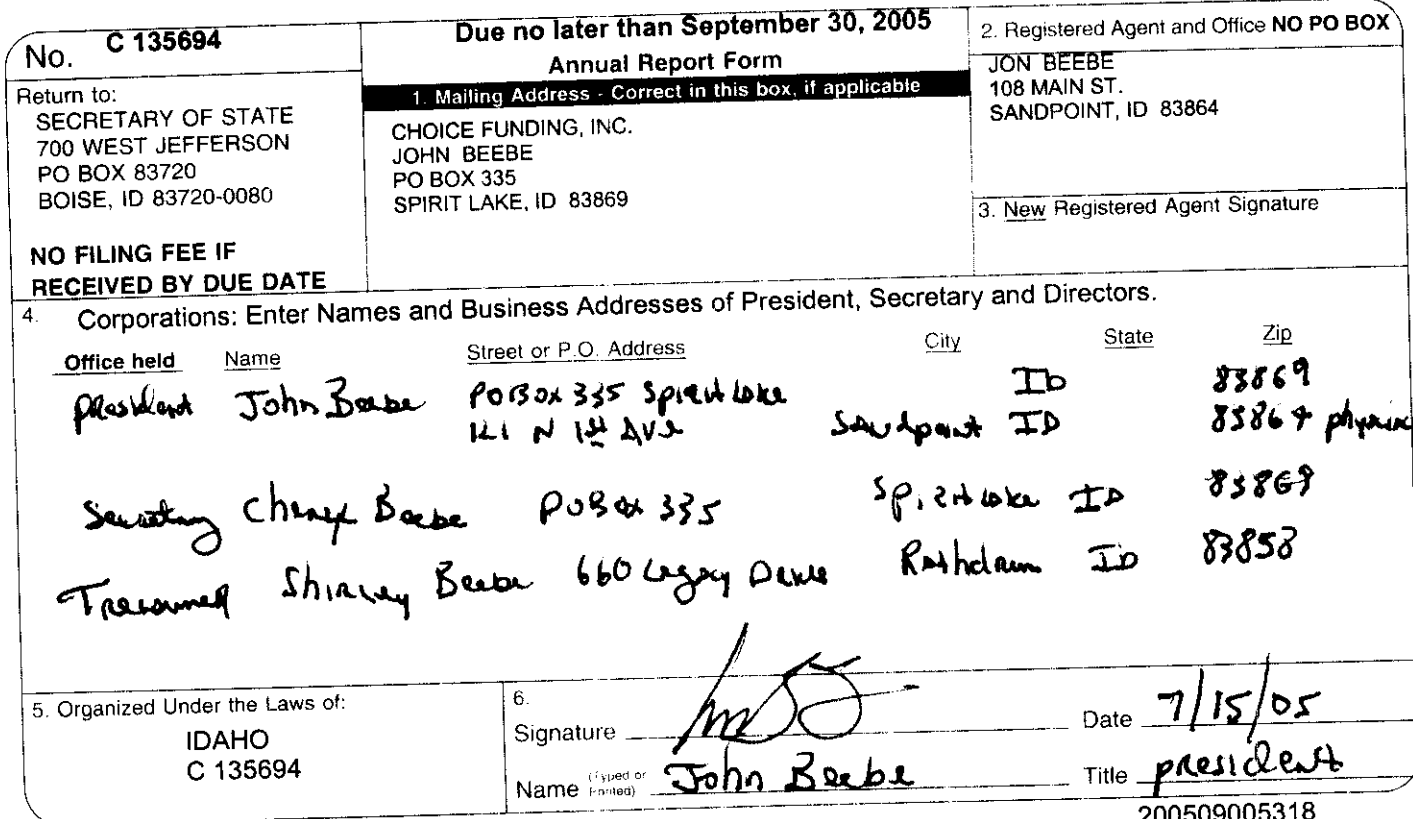 No. C 135694
Return to:
SECRETARY OF STATE
700 WEST JEFFERSON
PO BOX 83720
BOISE, ID 83720-0080
NO FILING FEE IF
RECEIVED BY DUE DATE
Due no later than September 30, 2005
Annual Report Form
1. Mailing Address - Correct in this box, if applicable
CHOICE FUNDING, INC.
JOHN BEEBE
PO BOX 335
SPIRIT LAKE, ID 83869
2. Registered Agent and Office NO PO BOX
JON BEEBE
108 MAIN ST.
SANDPOINT, ID 83864
3. New Registered Agent Signature
4. Corporations: Enter Names and Business Addresses of President, Secretary and Directors.
Office held Name Street or P.O. Address City State Zip
President John Beebe PO Box 335 Spirit Lake ID 83869
N 1st Ave Sandpoint ID 83864
Secretary Beebe PO Box 335 Spirit Lake ID 83869
Treasurer Shirley Beebe 660 Legacy Drive Rathdrum ID 83858
5. Organized Under the Laws of:
IDAHO
C 135694
6.
Signature
Date 7/15/05
Name (Typed or Printed) John Beebe
Title president
200509005318